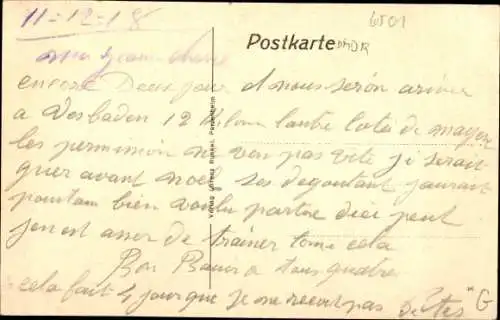 11-12-18
6501
Postkarte
ma chere
encore Deux jour et nous serón ariver
a Vesbaden 12 Kilom lautre coté de mayen
les permission ne von pas vite je serait
guer avant noel ses degoutant jaurait
pourtan bien voulu partire dici peut
jen est asser de trainer tome cela
Bon Baiser a tous quatre
cela fait 4 jour que je ne recoit pas
G